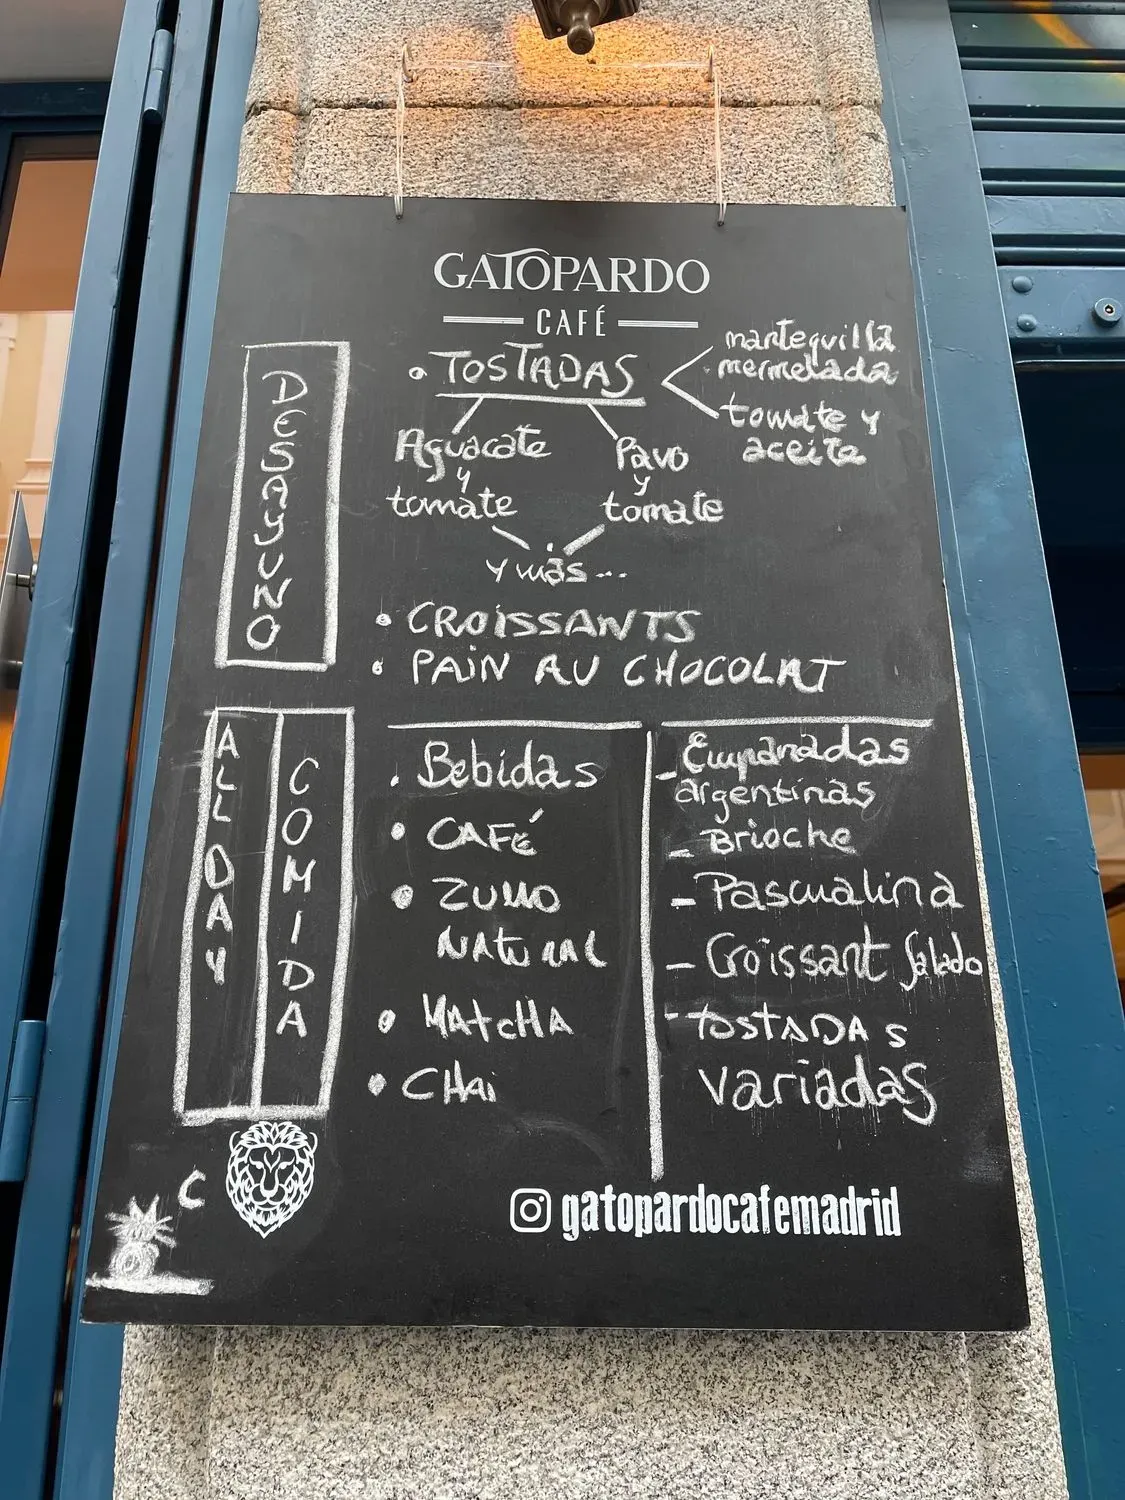 GATOPARDO
CAFÉ
DESAYUNO
• TOSTADAS
mantequilla
mermelada
tomate y
aceite
Aguacate
y
tomate
Pavo
y
tomate
y más...
• CROISSANTS
• PAIN AU CHOCOLAT
ALL DAY
COMIDA
. Bebidas
• CAFÉ
• ZUMO
NATURAL
• MATCHA
• CHAi
- Empanadas
argentinas
- Brioche
- Pascualina
- Croissant Salado
- TOSTADAS
variadas
C
gatopardocafemadrid